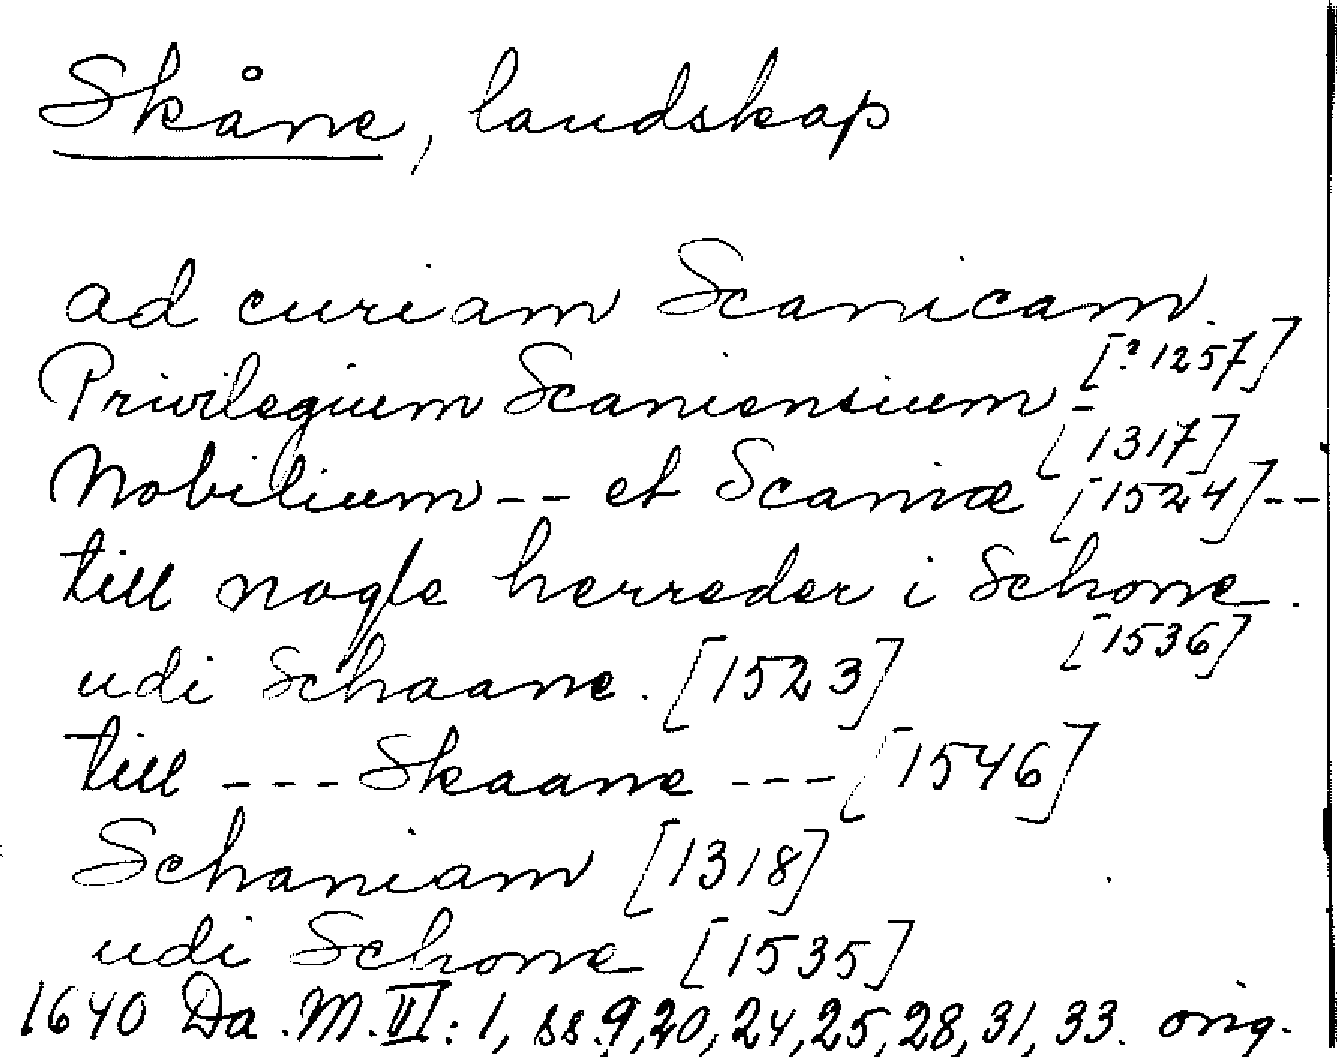 Skåne, landskap
ad curiam Scanicam.
[?1257]
Privilegium Scaniensium -
[1317]
Nobilium -- et Scaniæ [1524] --
till nogle herreder i Schone.
[1536]
udi Schaane. [1523]
till --- Skaane --- [1546]
Schaniam [1318]
udi Schone [1535]
1640 Da. M. II: 1, ss. 9, 20, 24, 25, 28, 31, 33. orig.